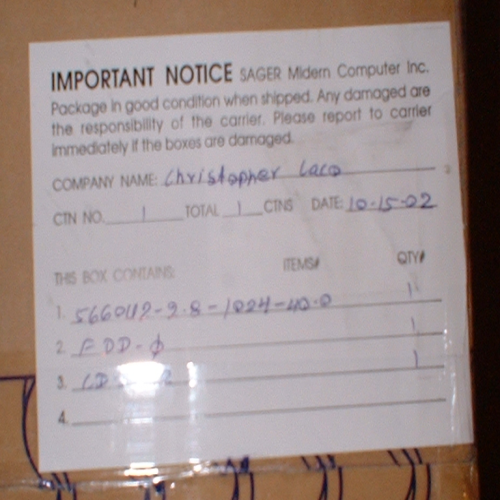 IMPORTANT NOTICE SAGER Midern Computer Inc.
Package in good condition when shipped. Any damaged are
the responsibility of the carrier. Please report to carrier
immediately if the boxes are damaged.
COMPANY NAME: Christopher Laco
CTN NO. 1 TOTAL 1 CTNS DATE: 10-15-02
THIS BOX CONTAINS: ITEMS# QTY#
1. 1
2. FDD-ϕ 1
3. 1
4.